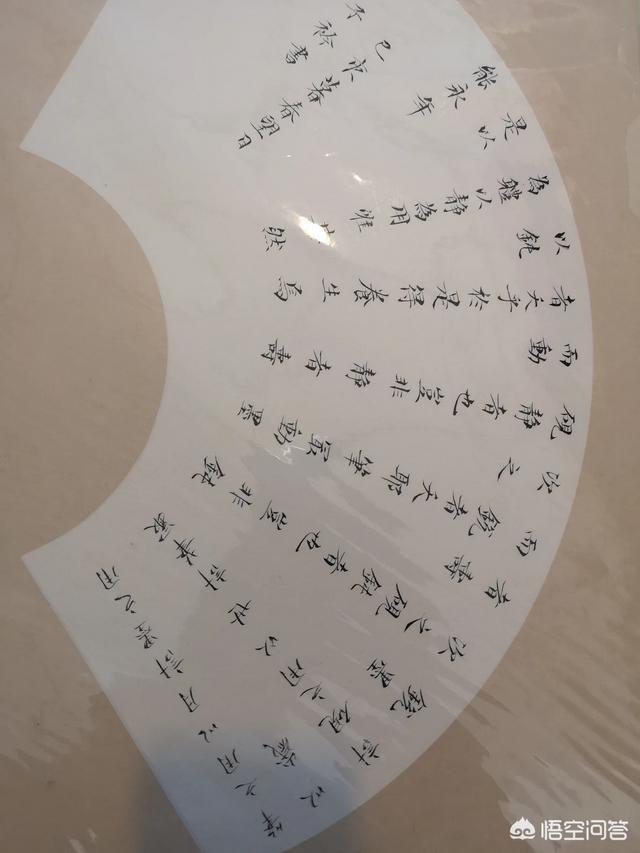 筆之用以月計墨之用
以歲
計硯之用以世計筆最
銳墨
次之硯鈍者也豈非鈍
者壽
而銳者夭耶筆最動墨
次之
硯靜者也豈非靜者壽
而動
者夭乎於是得養生焉
以鈍
為體以靜為用惟其然
是以
能永年
己亥暮春望日
書
悟空问答